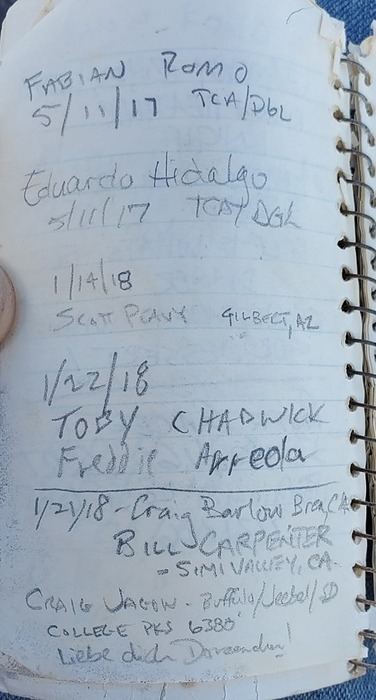 FABIAN ROMO
5/11/17 TCA/DGL
Eduardo Hidalgo
5/11/17 TCA/DGL
1/14/18
SCOTT PEAVY GILBERT, AZ
1/22/18
TOBY CHADWICK
Freddie Arreola
1/21/18 - Craig Barlow Brea, CA
BILL CARPENTER
- SIMI VALLEY, CA.
CRAIG - Buffalo/ /SD
COLLEGE PKS 6380
Liebe dich